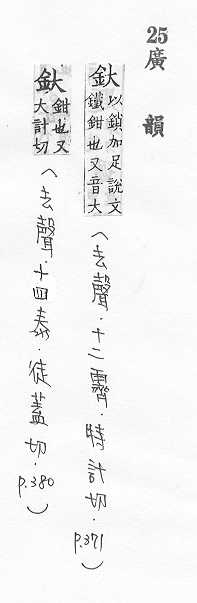 25廣韻
釱
以鎖加足說文
鐵鉗也又音大
(去聲.十二霽.時計切.p.371)
釱
鉗也又
大計切
(去聲.十四泰.徒蓋切.p.380)